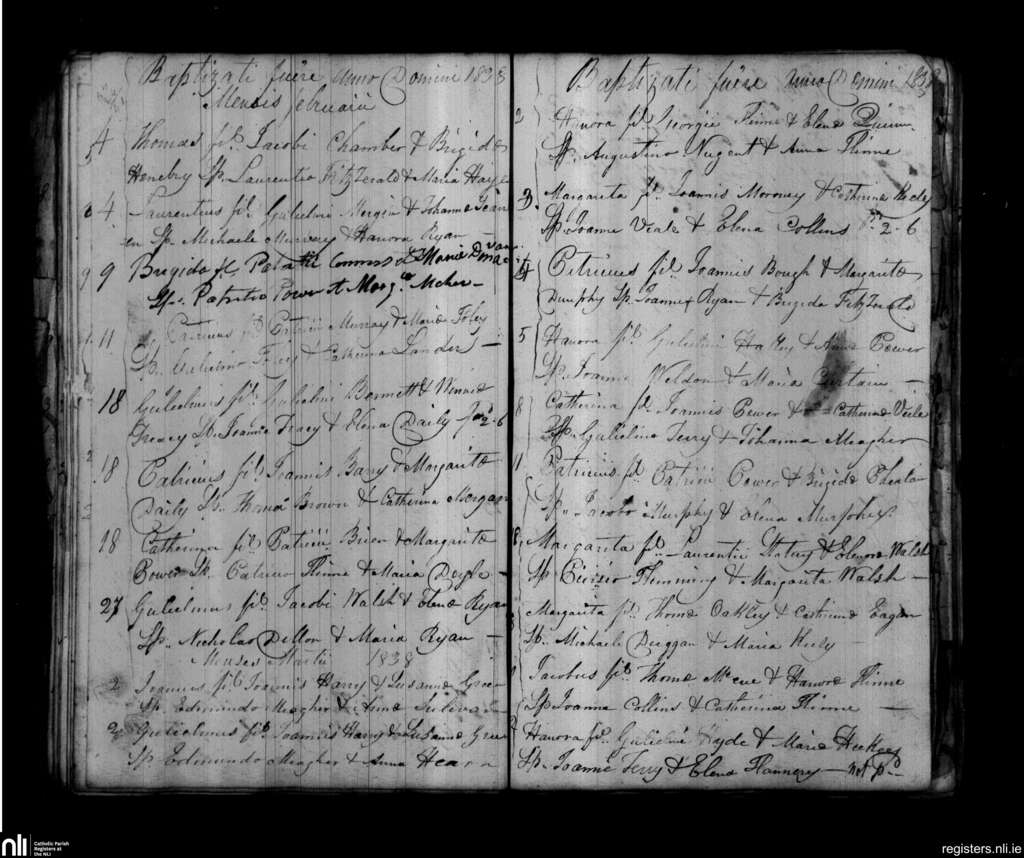 Baptizati fuere Anno Domini 1838
Mensis februarii
4 Thomas fil. Jacobi Chamber & Brigidæ
Henebry Sp. Laurentio FitzGerald & Maria Hayes
4 Laurentius fil. Gulielmi Morgan & Johannæ
Sp. Michaele Murray & Hanora Ryan –
9 Brigida fil. Patritii Connors & Mariæ
Sp. Patritio Power & Marg. Meher –
11 Patricius fil. Patricii Murray & Mariæ Foley
Sp. Gulielmo & Catherina Landers –
18 Gulielmus fil. Gulielmi Bennett & Winniæ
Treacy Sp. Joanne Tracy & Elena Daily pd. 2-6
18 Patricius fil. Joannis Barry & Margaritæ
Daily Sp. Thoma Brown & Catherina Morgan
18 Catherina fil. Patricii Brien & Margaritæ
Power Sp. Patricio Flinne & Maria Doyle –
27 Gulielmus fil. Jacobi Walsh & Elenæ Ryan
Sp. Nicholas Dillon & Maria Ryan –
Menses Martii 1838
2 Joannes fil. Joannis Harry & Susannæ
Sp. Edmundo Meagher & Anna
2 Gulielmus fil. Joannis Harry & Susannæ
Sp Edmundo Meagher & Anna Hearn
Baptizati fuere Anno Domini 1838
2 Hanora fil. Georgii Flinne & Elenæ Quinn
Sp. Augustino Nugent & Anna Flinne
3 Margarita fil. Joannis Moroney & Catherinæ
Sp. Joanne Veale & Elena Collins pd. 2-6
4 Patricius fil. Joannis Bough & Margaritæ
Dunphy Sp. Joanne Ryan & Brigida FitzGerald
5 Hanora fil. Gulielmi Hally & Annæ Power
Sp. Joanne Weldon & Maria Curtain –
8 Catherina fil. Joannis Power & Catherinæ Veale
Sp. Gulielmo Terry & Johanna Meagher
11 Patricius fil. Patricii Power & Brigidæ Phelan
Sp. Jacobo Murphy & Elena Murphy
Margarita fil. Laurentii Slatery & Elenoræ Walsh
Sp. Flemming & Margarita Walsh –
Margarita fil. Thomæ Oakley & Catherinæ Eagan
Sp. Michaele Duggan & Maria Kiely
Jacobus fil. Thomæ McCue & Hanoræ Flinne
Sp Joanne Collins & Catherina Flinne –
Hanora fil. Gulielmi Hyde & Mariæ
Sp. Joanne Terry & Elena Flannery – not pd.
nli
Catholic Parish
Registers at
the NLI
registers.nli.ie